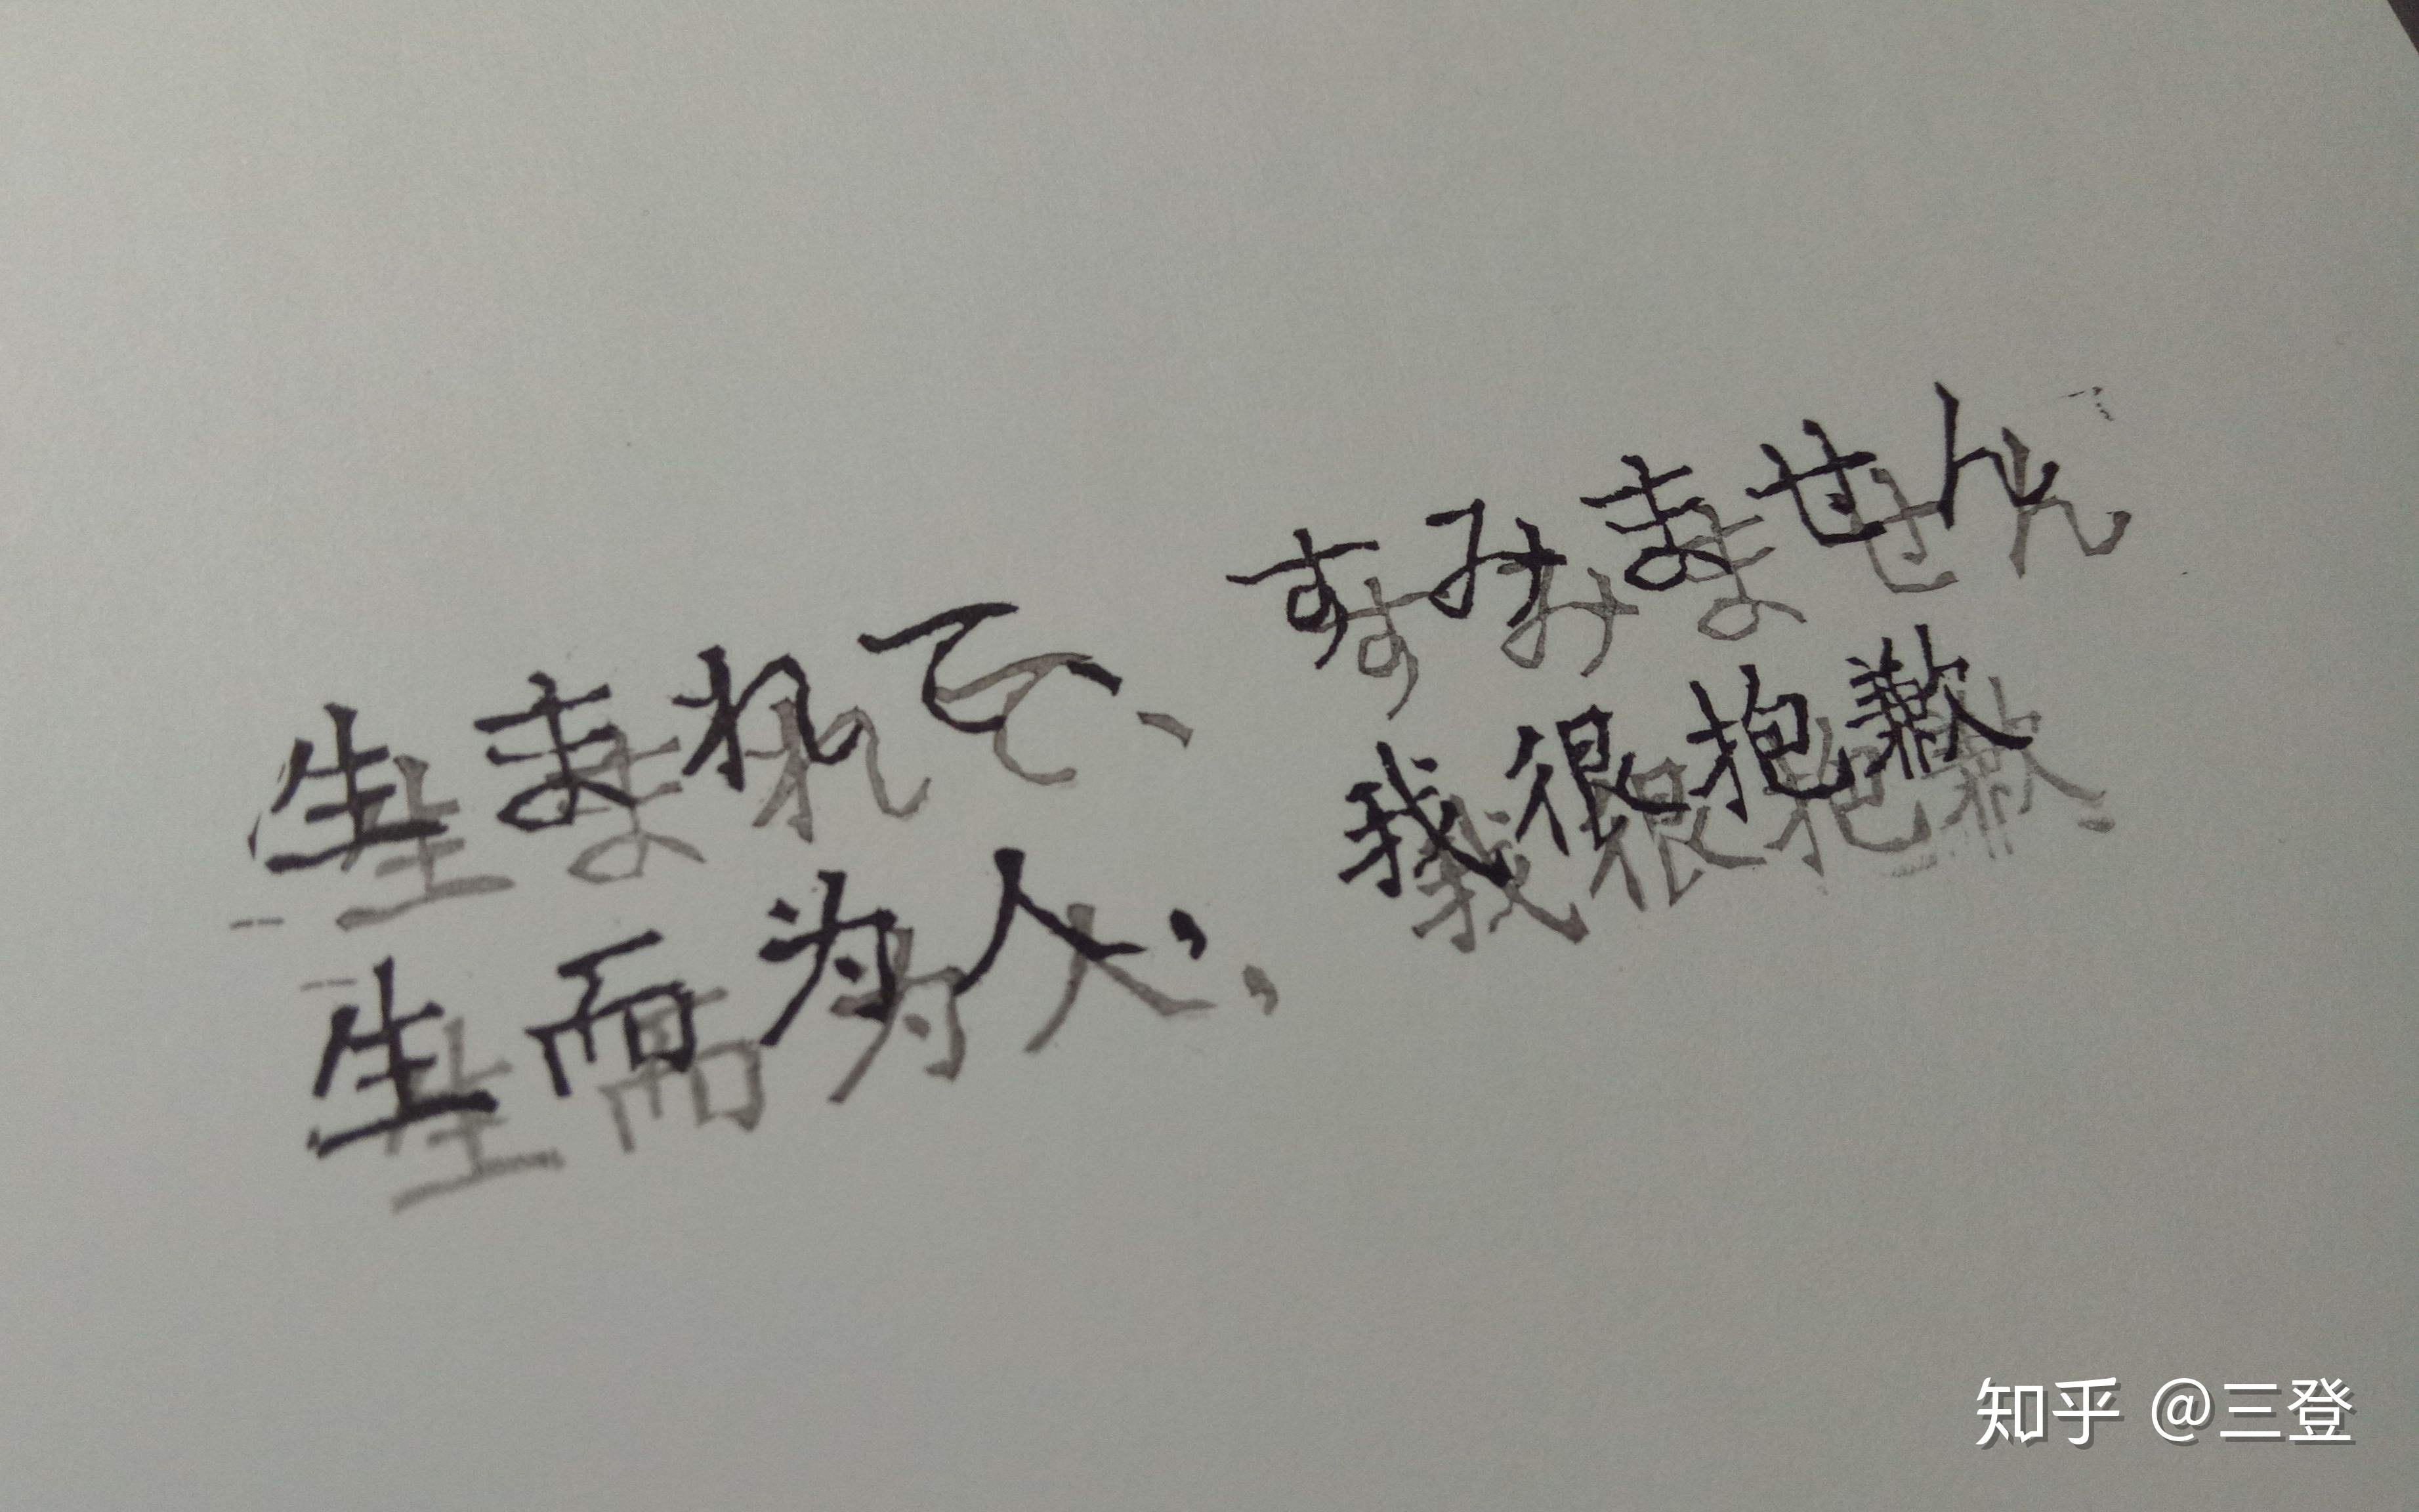 生まれて、すみません
生而为人，我很抱歉
知乎 @三登